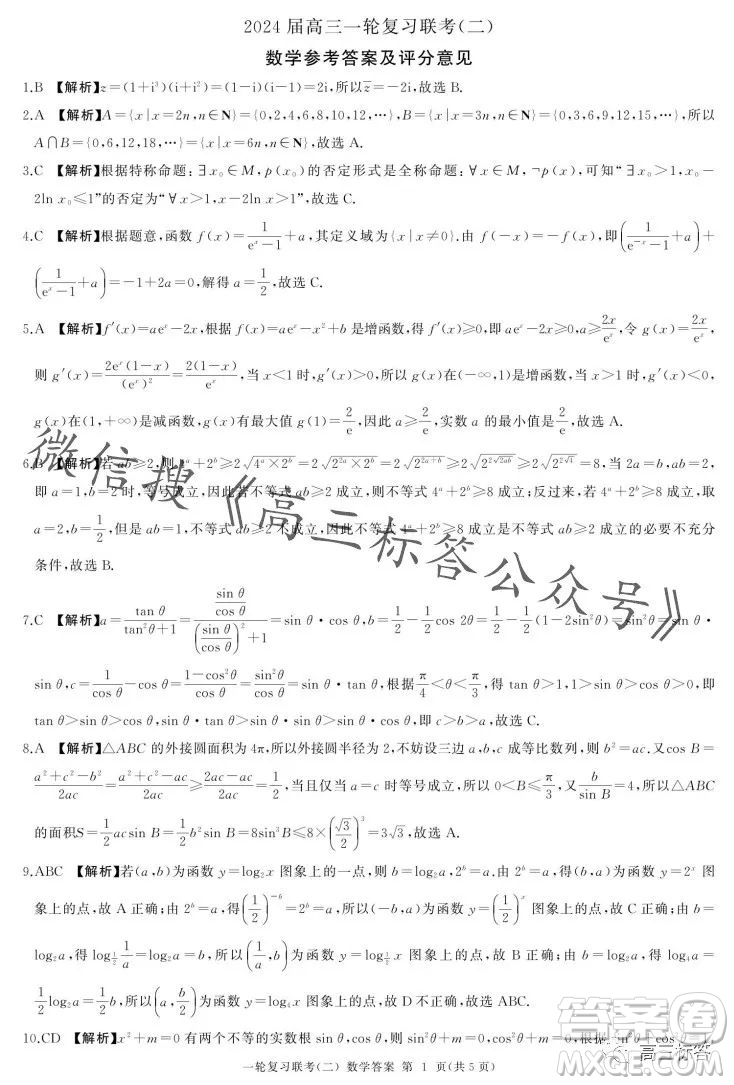 2024届高三一轮复习联考(二)
数学参考答案及评分意见
1.B 【解析】z=(1+i³)(i+i²)=(1-i)(i-1)=2i,所以z̄=-2i,故选 B.
2.A 【解析】A={x|x=2n,n∈N}={0,2,4,6,8,10,12,…},B={x|x=3n,n∈N}={0,3,6,9,12,15,…},所以
A∩B={0,6,12,18,…}={x|x=6n,n∈N},故选 A.
3.C 【解析】根据特称命题:∃x₀∈M,p(x₀)的否定形式是全称命题:∀x∈M,¬p(x),可知“∃x₀>1,x₀-
2ln x₀≤1”的否定为“∀x>1,x-2ln x>1”,故选 C.
4.C 【解析】根据题意,函数 f(x)=1/(eˣ-1)+a,其定义域为{x|x≠0}.由 f(-x)=-f(x),即(1/(e⁻ˣ-1)+a)+
(1/(eˣ-1)+a)=-1+2a=0,解得 a=1/2,故选 C.
5.A 【解析】f′(x)=aeˣ-2x,根据 f(x)=aeˣ-x²+b 是增函数,得 f′(x)≥0,即 aeˣ-2x≥0,a≥2x/eˣ,令 g(x)=2x/eˣ,
则 g′(x)=2eˣ(1-x)/(eˣ)²=2(1-x)/eˣ,当 x<1 时,g′(x)>0,所以 g(x)在(-∞,1)是增函数;当 x>1 时,g′(x)<0,
g(x)在(1,+∞)是减函数,g(x)有最大值 g(1)=2/e,因此 a≥2/e,实数 a 的最小值是2/e,故选 A.
6.B 【解析】若 ab≥2,则4ᵃ+2ᵇ≥2√(4ᵃ×2ᵇ)=2√(2²ᵃ×2ᵇ)=2√(2²ᵃ⁺ᵇ)≥2√(2^(2√(2ab)))≥2√(2^(2√4))=8,当 2a=b,ab=2,
即 a=1,b=2 时,等号成立,因此若不等式 ab≥2 成立,则不等式 4ᵃ+2ᵇ≥8 成立;反过来,若 4ᵃ+2ᵇ≥8 成立,取
a=2,b=1/2,但 ab=1,不等式 ab≥2 不成立,因此,不等式 4ᵃ+2ᵇ≥8 成立是不等式 ab≥2 成立的必要不充分
条件,故选 B.
7.C 【解析】a=tan θ/(tan²θ+1)=(sin θ/cos θ)/((sin θ/cos θ)²+1)=sin θ·cos θ,b=1/2-1/2cos 2θ=1/2-1/2(1-2sin²θ)=sin²θ=sin θ·
sin θ,c=1/cos θ-cos θ=(1-cos²θ)/cos θ=sin²θ/cos θ=sin θ·tan θ,根据π/4<θ<π/2,得 tan θ>1>sin θ>cos θ>0,即
tan θ>sin θ>cos θ>0,sin θ·tan θ>sin θ·sin θ>sin θ·cos θ,即 c>b>a,故选 C.
8.A 【解析】△ABC 的外接圆面积为 4π,所以外接圆半径为 2,不妨设三边 a,b,c 成等比数列,则 b²=ac.又cos B=
(a²+c²-b²)/2ac=(a²+c²-ac)/2ac≥(2ac-ac)/2ac=1/2,当且仅当 a=c 时等号成立,所以 0<B≤π/3,又b/sin B=4,所以△ABC
的面积S=1/2acsin B=1/2b²sin B=8sin³B≤8×(√3/2)³=3√3,故选 A.
9.ABC 【解析】若(a,b)为函数 y=log₂x 图象上的一点,则 b=log₂a,2ᵇ=a,由 2ᵇ=a,得(b,a)为函数 y=2ˣ 图
象上的点,故 A 正确;由 2ᵇ=a,得(1/2)⁻ᵇ=2ᵇ=a,所以(-b,a)为函数 y=(1/2)ˣ 图象上的点,故 B 正确;由 b=
log₂a,得 log_(1/2) 1/a=log₂a=b,所以(1/a,b)为函数 y=log_(1/2)x 图象上的点,故 C 正确;由 b=log₂a,得 log₄a=
1/2log₂a=1/2b,所以(a,1/2b)为函数 y=log₄x 图象上的点,故 D 不正确,故选 ABC.
10.CD 【解析】x²+m=0 有两个不等的实数根 sin θ,cos θ,则 sin²θ+m=0,cos²θ+m=0,
一轮复习联考(二) 数学答案 第 1 页(共 5 页)
微信搜《高三标答公众号》
答案圈
高三标答